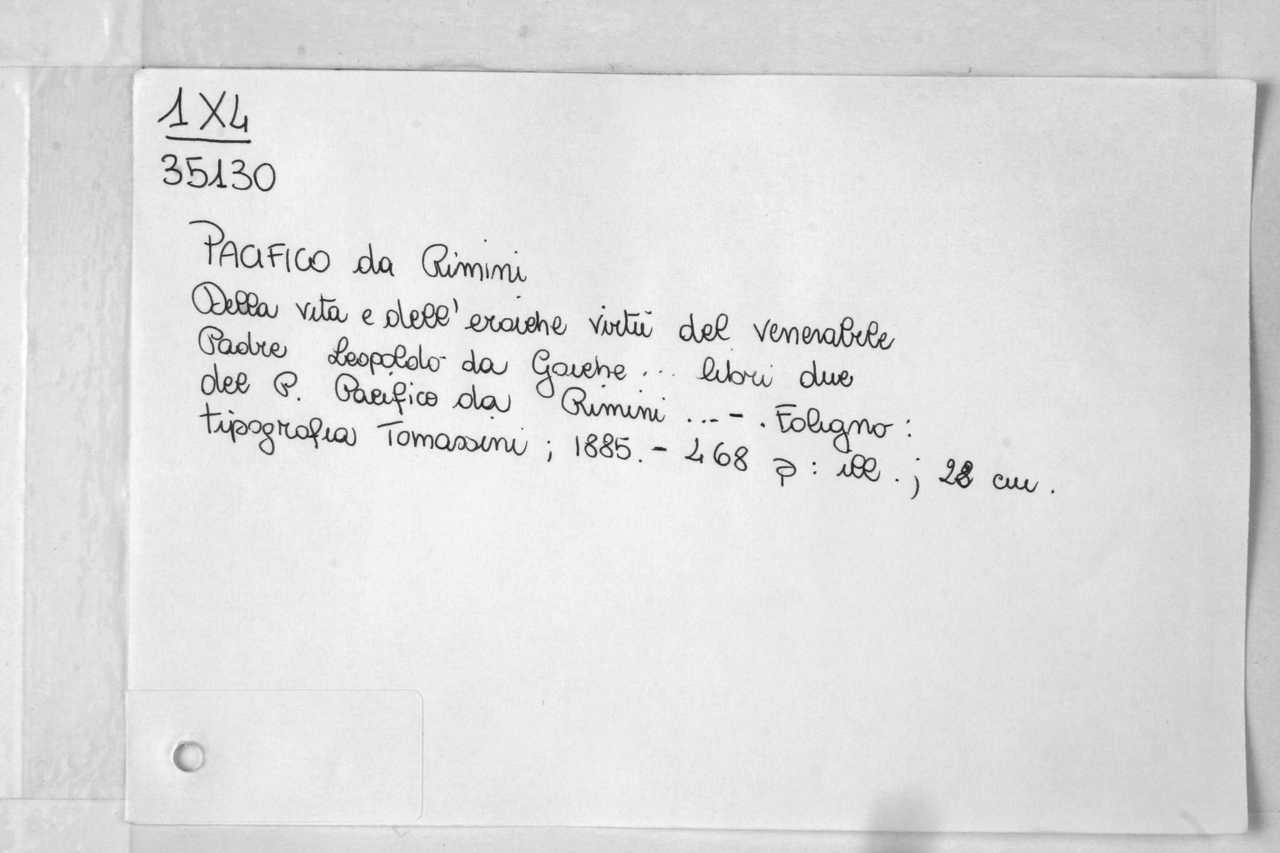 1 X4
35130
PACIFICO da Rimini
Della vita e dell'eroiche virtù del venerabile
Padre Leopoldo da Gaiche ... libri due
del P. Pacifico da Rimini ... - . Foligno :
tipografia Tomassini ; 1885. - 468 p : ill . ; 28 cm .